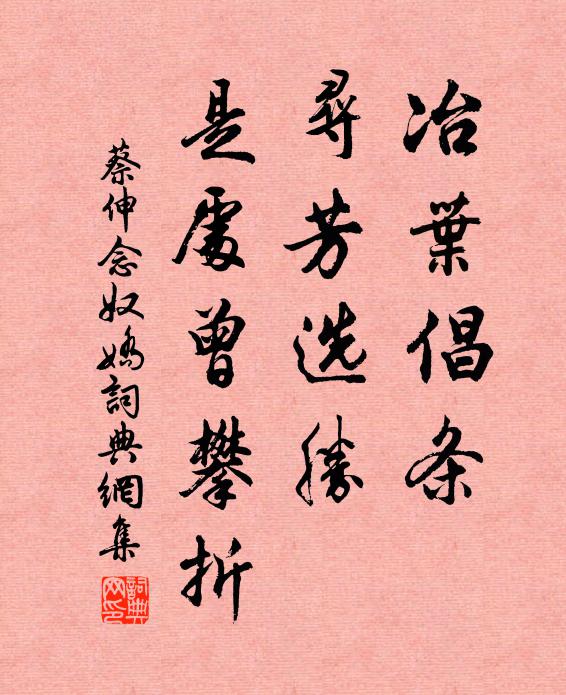 冶葉倡条
尋芳选勝
是處曾攀折
蔡伸念奴嬌詞典網集
詞典网印